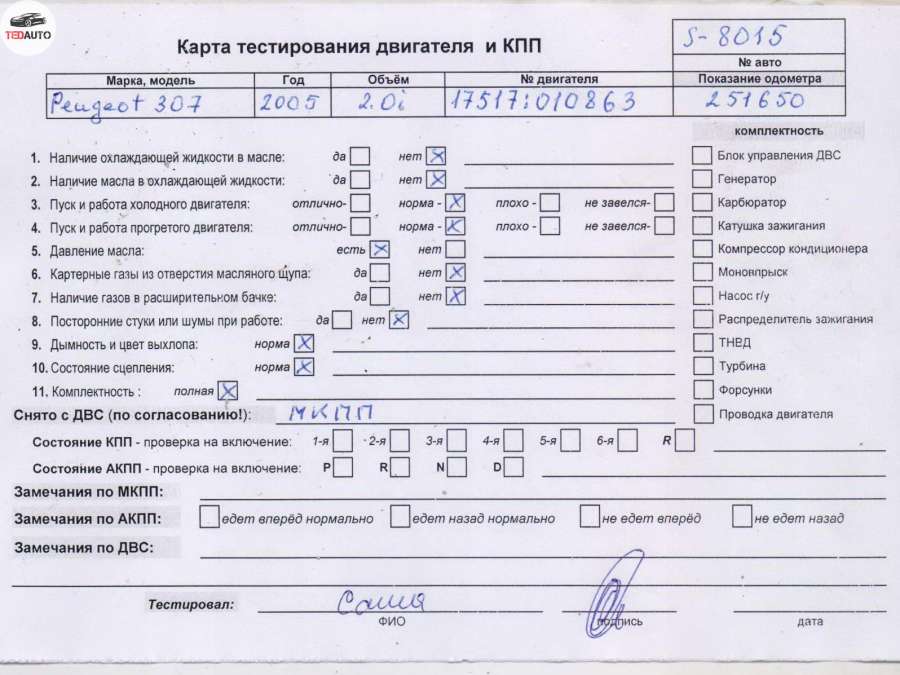 TEDAUTO
Карта тестирования двигателя и КПП
S-8015
№ авто
Марка, модель Год Объём № двигателя Показание одометра
Peugeot 307 2005 2.0i 17517:010863 251650
комплектность
1. Наличие охлаждающей жидкости в масле: да нет Блок управления ДВС
2. Наличие масла в охлаждающей жидкости: да нет Генератор
3. Пуск и работа холодного двигателя: отлично- норма - плохо - не завелся- Карбюратор
4. Пуск и работа прогретого двигателя: отлично- норма - плохо - не завелся- Катушка зажигания
5. Давление масла: есть нет Компрессор кондиционера
6. Картерные газы из отверстия масляного щупа: да нет Моновпрыск
7. Наличие газов в расширительном бачке: да нет Насос г/у
8. Посторонние стуки или шумы при работе: да нет Распределитель зажигания
9. Дымность и цвет выхлопа: норма ТНВД
10. Состояние сцепления: норма Турбина
11. Комплектность : полная Форсунки
Снято с ДВС (по согласованию!): МКПП Проводка двигателя
Состояние КПП - проверка на включение: 1-я 2-я 3-я 4-я 5-я 6-я R
Состояние АКПП - проверка на включение: P R N D
Замечания по МКПП:
Замечания по АКПП: едет вперёд нормально едет назад нормально не едет вперёд не едет назад
Замечания по ДВС:
Тестировал: Саша
ФИО подпись дата